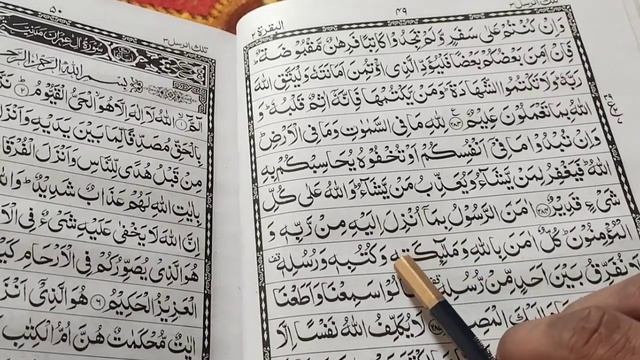 تلك الرسل ٣
٤٩
البقرة ٢
وَاِنْ كُنْتُمْ عَلٰى سَفَرٍ وَّلَمْ تَجِدُوْا كَاتِبًا فَرِهٰنٌ مَّقْبُوْضَةٌ ؕ
فَاِنْ اَمِنَ بَعْضُكُمْ بَعْضًا فَلْيُؤَدِّ الَّذِى اؤْتُمِنَ اَمَانَتَهٗ وَلْيَتَّقِ اللّٰهَ
رَبَّهٗ ؕ وَلَا تَكْتُمُوا الشَّهَادَةَ ؕ وَمَنْ يَّكْتُمْهَا فَاِنَّهٗۤ اٰثِمٌ قَلْبُهٗ ؕ وَ
اللّٰهُ بِمَا تَعْمَلُوْنَ عَلِيْمٌ ﴿٢٨٣﴾ لِلّٰهِ مَا فِى السَّمٰوٰتِ وَمَا فِى الْاَرْضِ ؕ
وَاِنْ تُبْدُوْا مَا فِىْۤ اَنْفُسِكُمْ اَوْ تُخْفُوْهُ يُحَاسِبْكُمْ بِهِ
اللّٰهُ ؕ فَيَغْفِرُ لِمَنْ يَّشَآءُ وَيُعَذِّبُ مَنْ يَّشَآءُ ؕ وَاللّٰهُ عَلٰى كُلِّ
شَىْءٍ قَدِيْرٌ ﴿٢٨٤﴾ اٰمَنَ الرَّسُوْلُ بِمَاۤ اُنْزِلَ اِلَيْهِ مِنْ رَّبِّهٖ وَ
الْمُؤْمِنُوْنَ ؕ كُلٌّ اٰمَنَ بِاللّٰهِ وَمَلٰٓئِكَتِهٖ وَكُتُبِهٖ وَرُسُلِهٖ
نُفَرِّقُ بَيْنَ اَحَدٍ مِّنْ رُّسُلِهٖ لُوْا سَمِعْنَا وَاَطَعْنَا
رَبَّنَا وَاِلَيْكَ الْمَصِ ﴿٢٨٥﴾ لَا يُكَلِّفُ اللّٰهُ نَفْسًا اِلَّا
٥٠
تلك الرسل ٣
سُوْرَةُ اٰلِ عِمْرٰنَ مَدَنِيَّةٌ
بِسْمِ اللّٰهِ الرَّحْمٰنِ الرَّحِيْمِ
الٓمّٓ ﴿١﴾ اللّٰهُ لَاۤ اِلٰهَ اِلَّا هُوَ الْحَىُّ الْقَيُّوْمُ ﴿٢﴾
بِالْحَقِّ مُصَدِّقًا لِّمَا بَيْنَ يَدَيْهِ وَاَنْزَلَ
مِنْ قَبْلُ هُدًى لِّلنَّاسِ وَاَنْزَلَ الْفُرْقَا
بِاٰيٰتِ اللّٰهِ لَهُمْ عَذَابٌ شَدِيْدٌ ؕ
اِنَّ اللّٰهَ لَا يَخْفٰى عَلَيْهِ شَىْءٌ فِى
هُوَ الَّذِىْ يُصَوِّرُكُمْ فِى الْاَرْحَامِ
الْعَزِيْزُ الْحَكِيْمُ ﴿٦﴾ هُوَ الَّذِىْۤ
اٰيٰتٌ مُّحْكَمٰتٌ هُنَّ اُمُّ الْكِتٰبِ